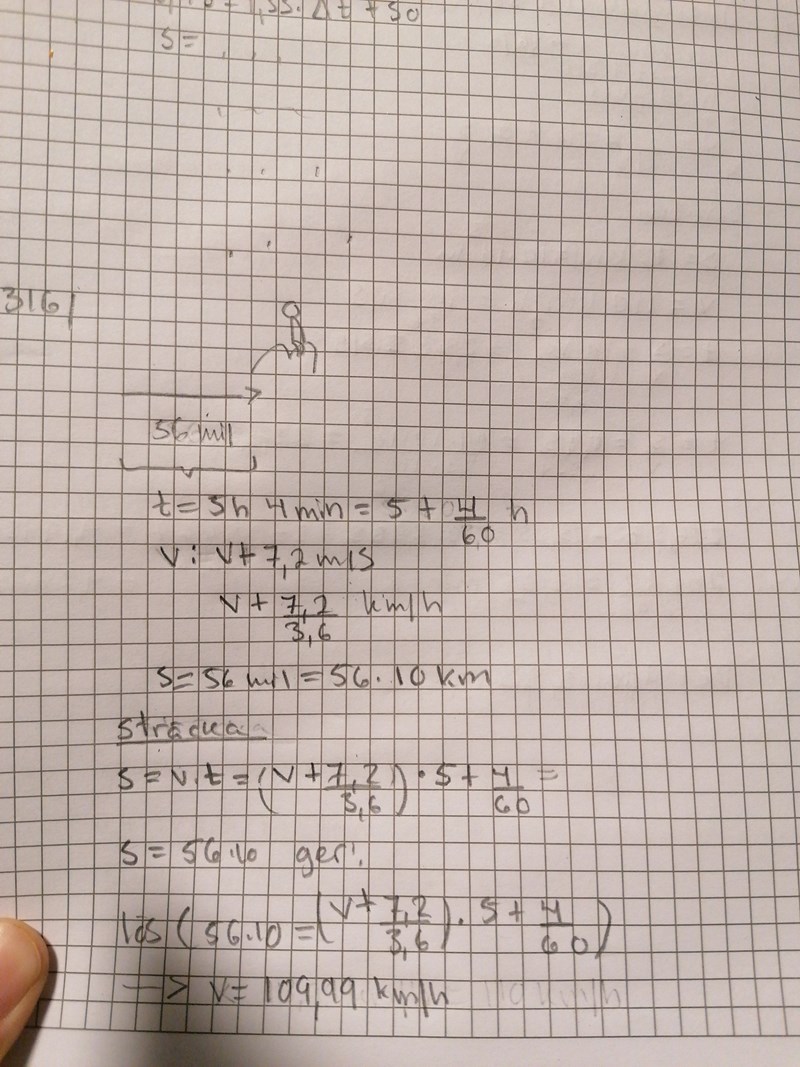 1,55·Δt + 50
s =
316/
56 mil
t = 5h 4min = 5 + 4/60 h
v: v + 7,2 m/s
v + 7,2/3,6 km/h
s = 56 mil = 56·10 km
sträcka
s = v·t = (v + 7,2/3,6)·5 + 4/60 =
s = 56·10 ger:
lös (56·10 = (v + 7,2/3,6)·5 + 4/60)
—> v = 109,99 km/h